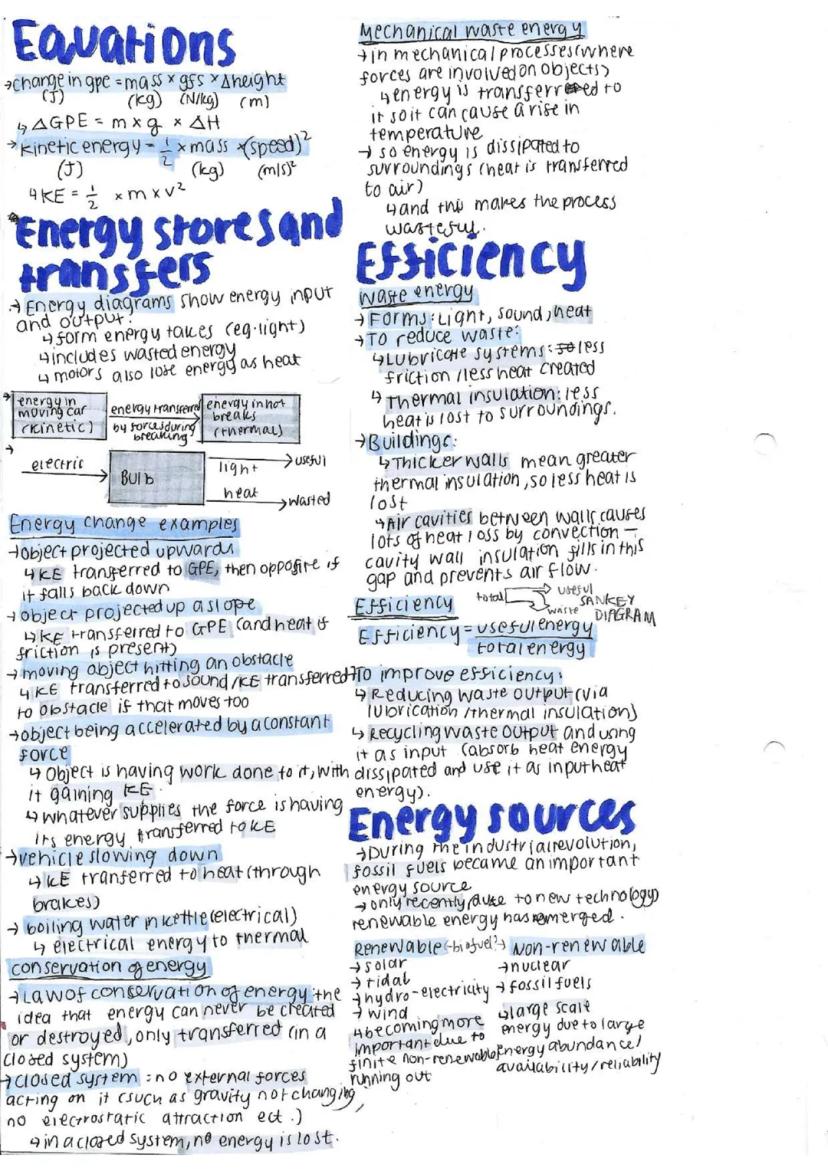 Equations
→change in gpe = mass × gfs × Δheight
(J) (kg) (N/kg) (m)
↳ ΔGPE = m × g × ΔH
→ kinetic energy = 1/2 × mass × (speed)²
(J) (kg) (m/s)²
↳ KE = 1/2 × m × v²
Energy stores and
transfers
→ Energy diagrams show energy input
and output.
↳ form energy takes (eg. light)
↳ includes wasted energy
↳ motors also lose energy as heat
→ energy in moving car (kinetic) energy transferred by forces during breaking energy in hot breaks (thermal)
→ electric Bulb light → useful
heat → wasted
Energy change examples
→object projected upwards
↳ KE transferred to GPE, then opposite if
it falls back down
→ object projected up a slope
↳ KE transferred to GPE (and heat if
friction is present)
→ moving object hitting an obstacle
↳ KE transferred to sound/KE transferred
to obstacle if that moves too
→object being accelerated by a constant
force
↳ Object is having work done to it, with
it gaining KE
↳ whatever supplies the force is having
its energy transferred to KE
→vehicle slowing down
↳ KE tranferred to heat (through
brakes)
→ boiling water in kettle (electrical)
↳ electrical energy to thermal
conservation of energy
→ Law of conservation of energy: the
idea that energy can never be created
or destroyed, only transferred (in a
closed system)
→closed system : no external forces
acting on it (such as gravity not changing,
no electrostatic attraction ect.)
↳ in a closed system, no energy is lost.
Mechanical waste energy
→ in mechanical processes (where
forces are involved on objects)
↳ energy is transferred to
it so it can cause a rise in
temperature
→ so energy is dissipated to
surroundings (heat is transferred
to air)
↳ and this makes the process
wasteful.
Efficiency
waste energy
→ Forms: Light, sound, heat
→ To reduce waste:
↳ Lubricate systems: so less
friction/less heat created
↳ Thermal insulation: less
heat is lost to surroundings.
→ Buildings:
↳ Thicker walls mean greater
thermal insulation, so less heat is
lost
↳ Air cavities between walls causes
lots of heat loss by convection –
cavity wall insulation fills in this
gap and prevents air flow.
total useful
waste SANKEY
DIAGRAM
Efficiency
Efficiency = useful energy
total energy
→To improve efficiency:
↳ Reducing waste output (via
lubrication/thermal insulation)
↳ Recycling waste output and using
it as input (absorb heat energy
dissipated and use it as input heat
energy).
Energy sources
→During the industrial revolution,
fossil fuels became an important
energy source
→ only recently (due to new technology)
renewable energy has emerged.
Renewable ←biofuel?→ Non-renewable
→ solar →nuclear
→ tidal → fossil fuels
→ hydro-electricity
→ wind
↳ large scale
energy due to large
energy abundance/
availability/reliability
↳ becoming more
important due to
finite non-renewable
running out